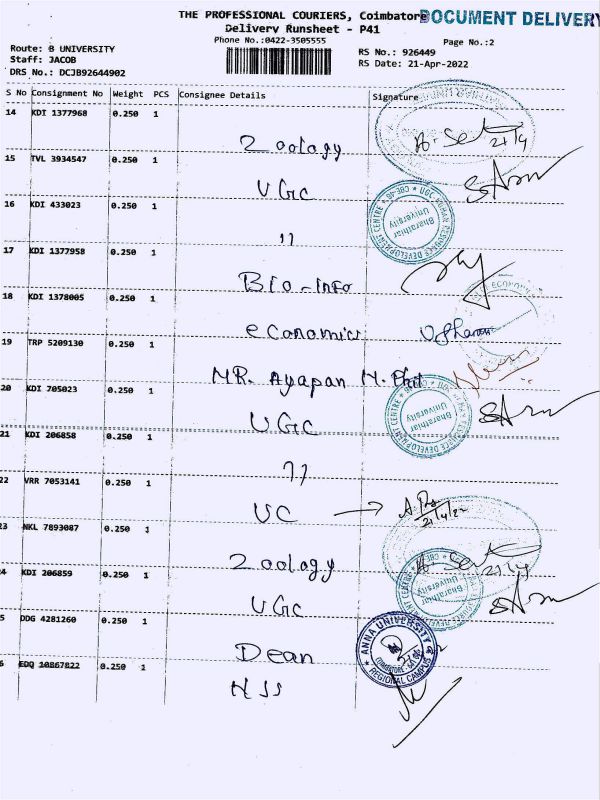 THE PROFESSIONAL COURIERS, Coimbatore DOCUMENT DELIVERY
Delivery Runsheet - P41
Phone No.:0422-3505555
Page No.:2
Route: B UNIVERSITY
RS No.: 926449
Staff: JACOB
RS Date: 21-Apr-2022
DRS No.: DCJB92644902
S No Consignment No Weight PCS Consignee Details Signature
14 KDI 1377968 0.250 1
Zoology 21/4
15 TVL 3934547 0.250 1
UGC
16 KDI 433023 0.250 1
UGC HUMAN RESOURCE DEVELOPMENT CENTRE
Bharathiar University
11
17 KDI 1377958 0.250 1
Bio-info
18 KDI 1378005 0.250 1
economics
19 TRP 5209130 0.250 1
MR. Ayapan M.Phil
20 KDI 705023 0.250 1
Bharathiar University
UGC
21 KDI 206858 0.250 1
11
22 VRR 7053141 0.250 1
UC → 21/4/22
23 NKL 7893087 0.250 1
Zoology 21/4
24 KDI 206859 0.250 1
Bharathiar University
UGC
5 DDG 4281260 0.250 1
ANNA UNIVERSITY
REGIONAL CAMPUS
Dean
6 EDQ 10867822 0.250 1
HSS